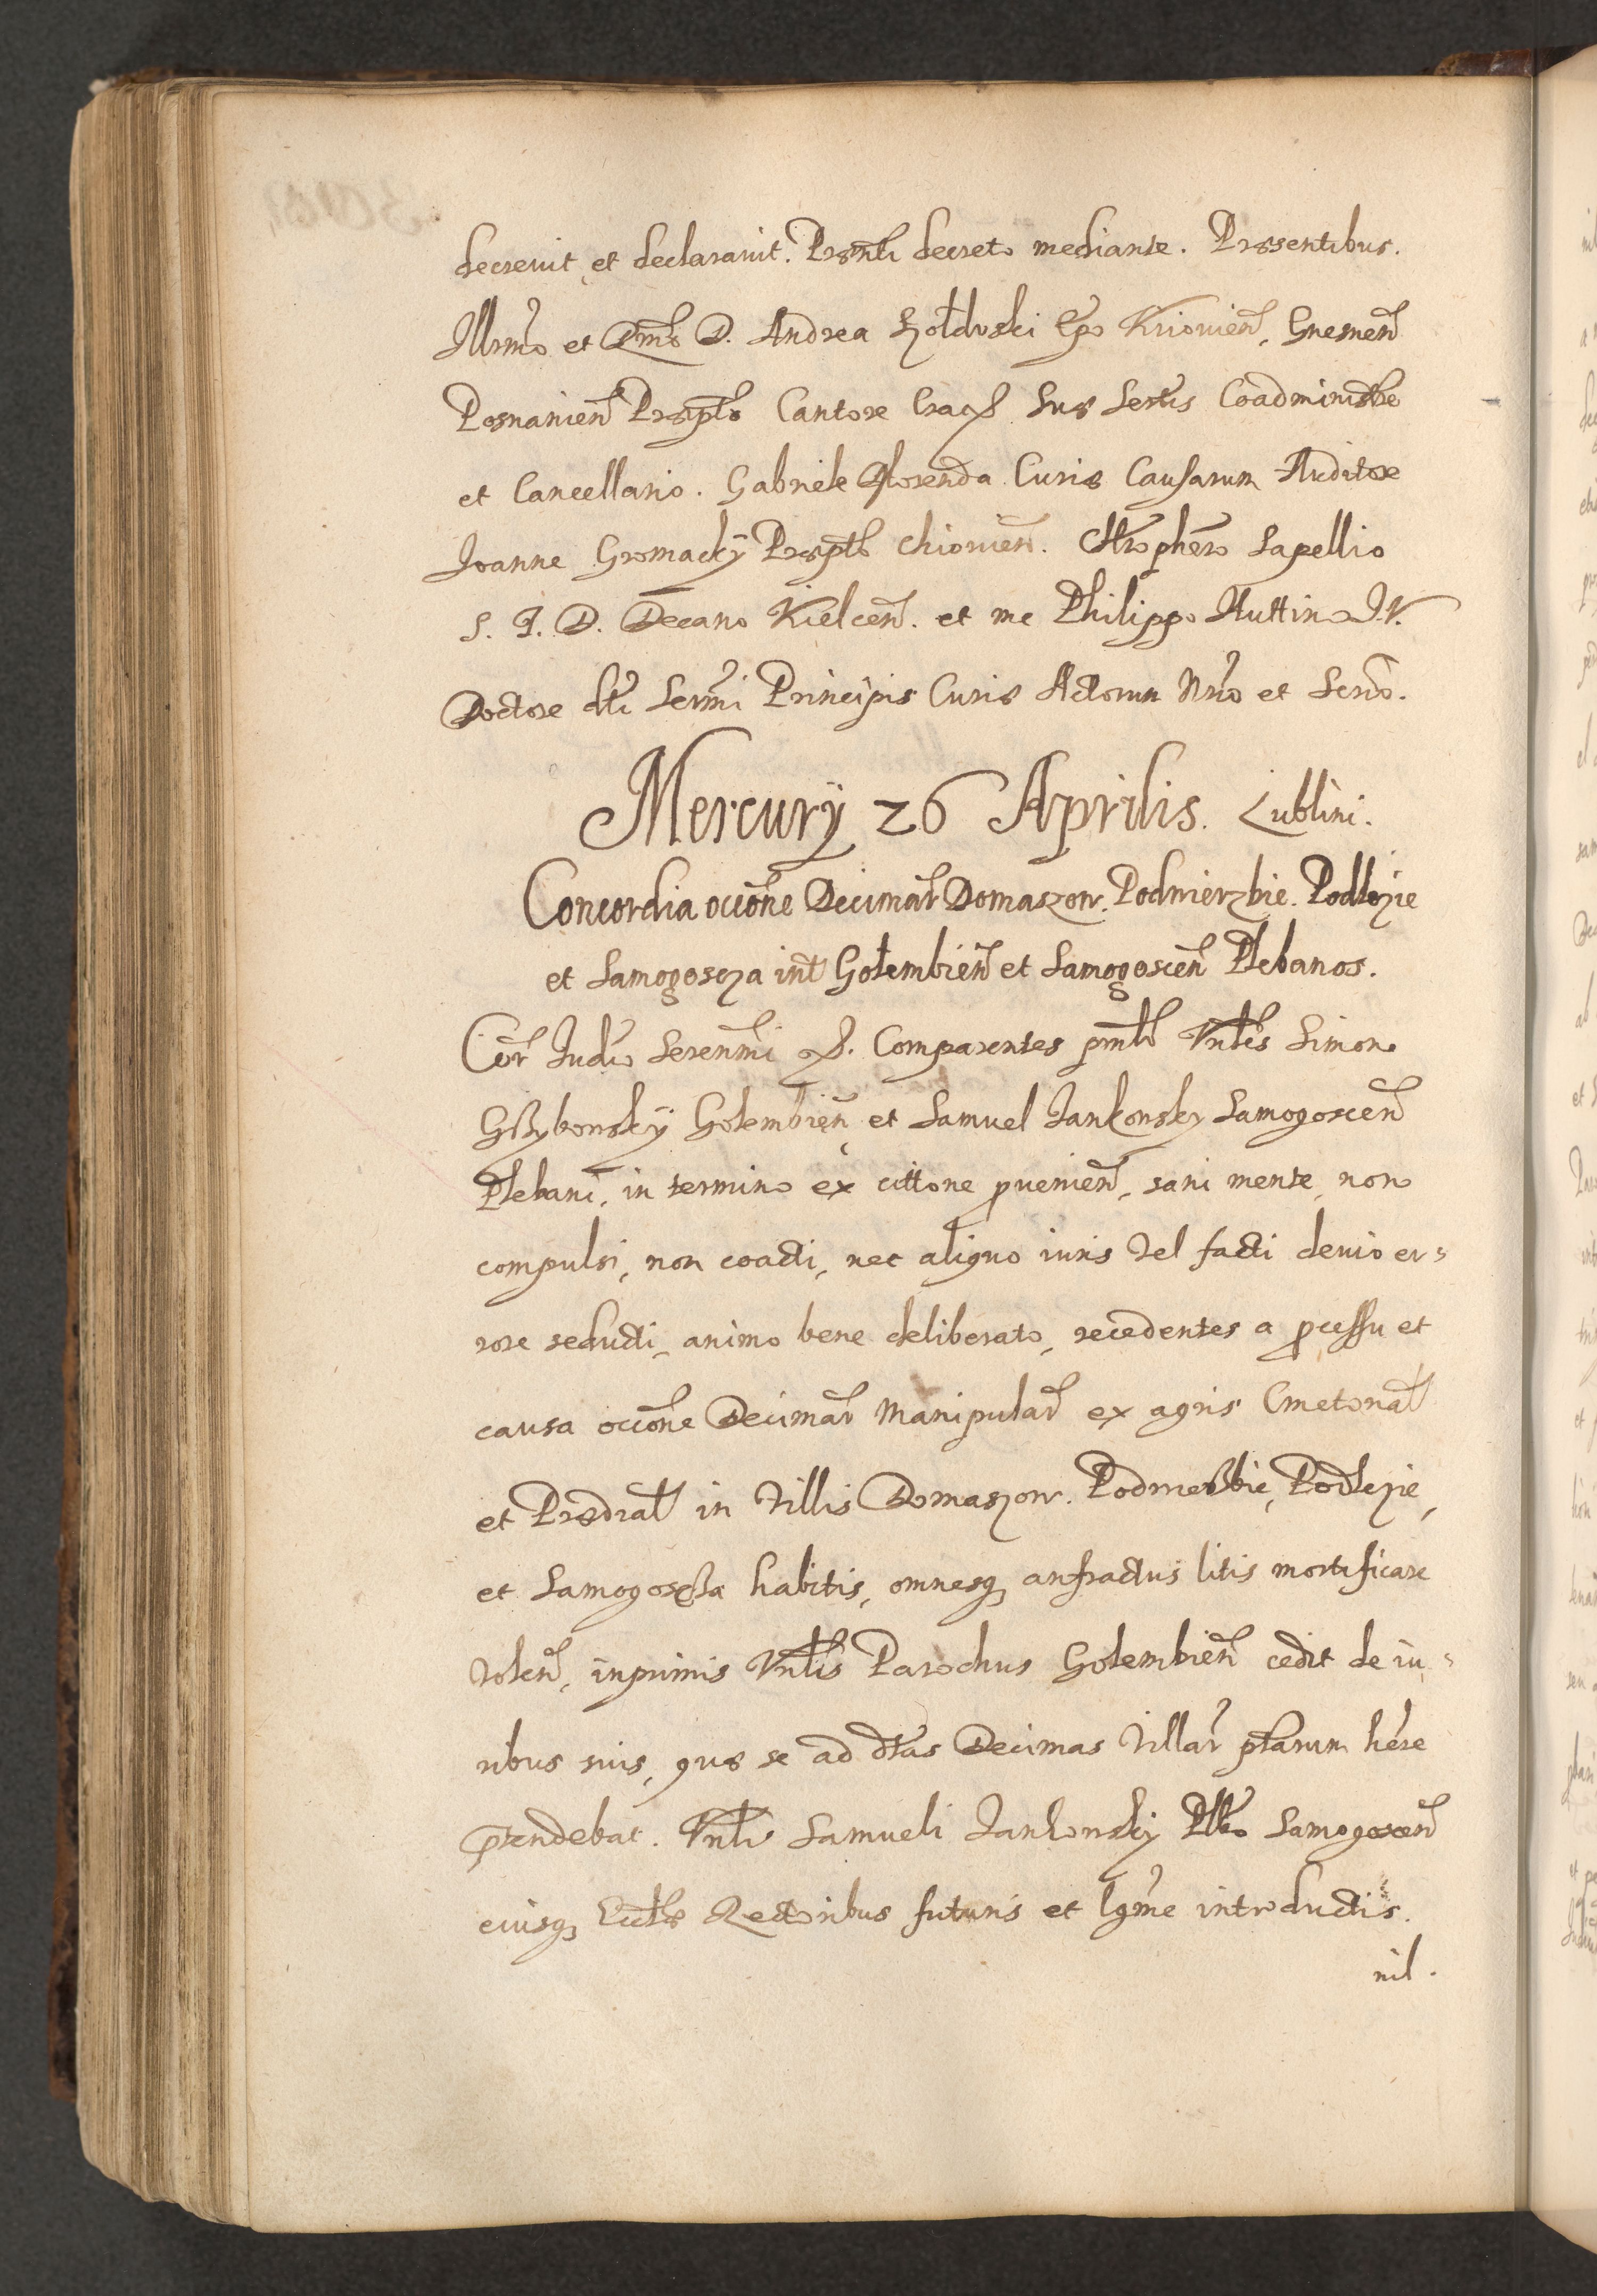 decrevit et declaravit. Prӕnti decreto mediante. Prӕsentibus.
Illrmo et Rmo D. Andrea Szołdrski Epo Kiiovien, Gnesnen
Posnanien Prӕpto Cantore Crac &. Suӕ Sertis Coadministre
et Cancellario. Gabriele Florenda Curiӕ Causarum Auditore
Joanne Gromackÿ Prӕpto Chiovien. Chrophero Sapellio
S. J. D. Decano Kielcen. et me Philippo Huttin J. V.
Doctore dti Sermi Principis Curiӕ Actorum Nrio et Scrio.
Mercurÿ 26 Aprilis. Lublini.
Concordia occone Decimar Domaszow. Podwierzbie. Podlezie
et Samogoscza int Gołembien et Samogoscen Plebanos.
Cor Judio Serenmi &. Comparentes pnalr Vnles Simon
Grzybowskÿ Golembien et Samuel Jankowsky Samogoscen
Plebani, in termino ex cittone pvenien, sani mente, non
compulsi, non coacti, nec aliquo iuris vel facti devio er-
rore seducti, animo bene deliberato, recedentes a pcessu et
causa occone Decimar Manipular ex agris Cmetonal
et Prӕdial in Villis Domaszow. Podwierzbie, Podlezie,
et Samogoscza habitis, omnesq anfractus litis mortificare
volen, inprimis Vnlis Parochus Golembien cedit de iu-
ribus suis, quӕ se ad dtas Decimas Villar ptarum here
ptendebat. Vnli Samueli Jankowskÿ Plbo Samogoscen
eiusq Eccliӕ Rectoribus futuris et lgme introductis.
nil.